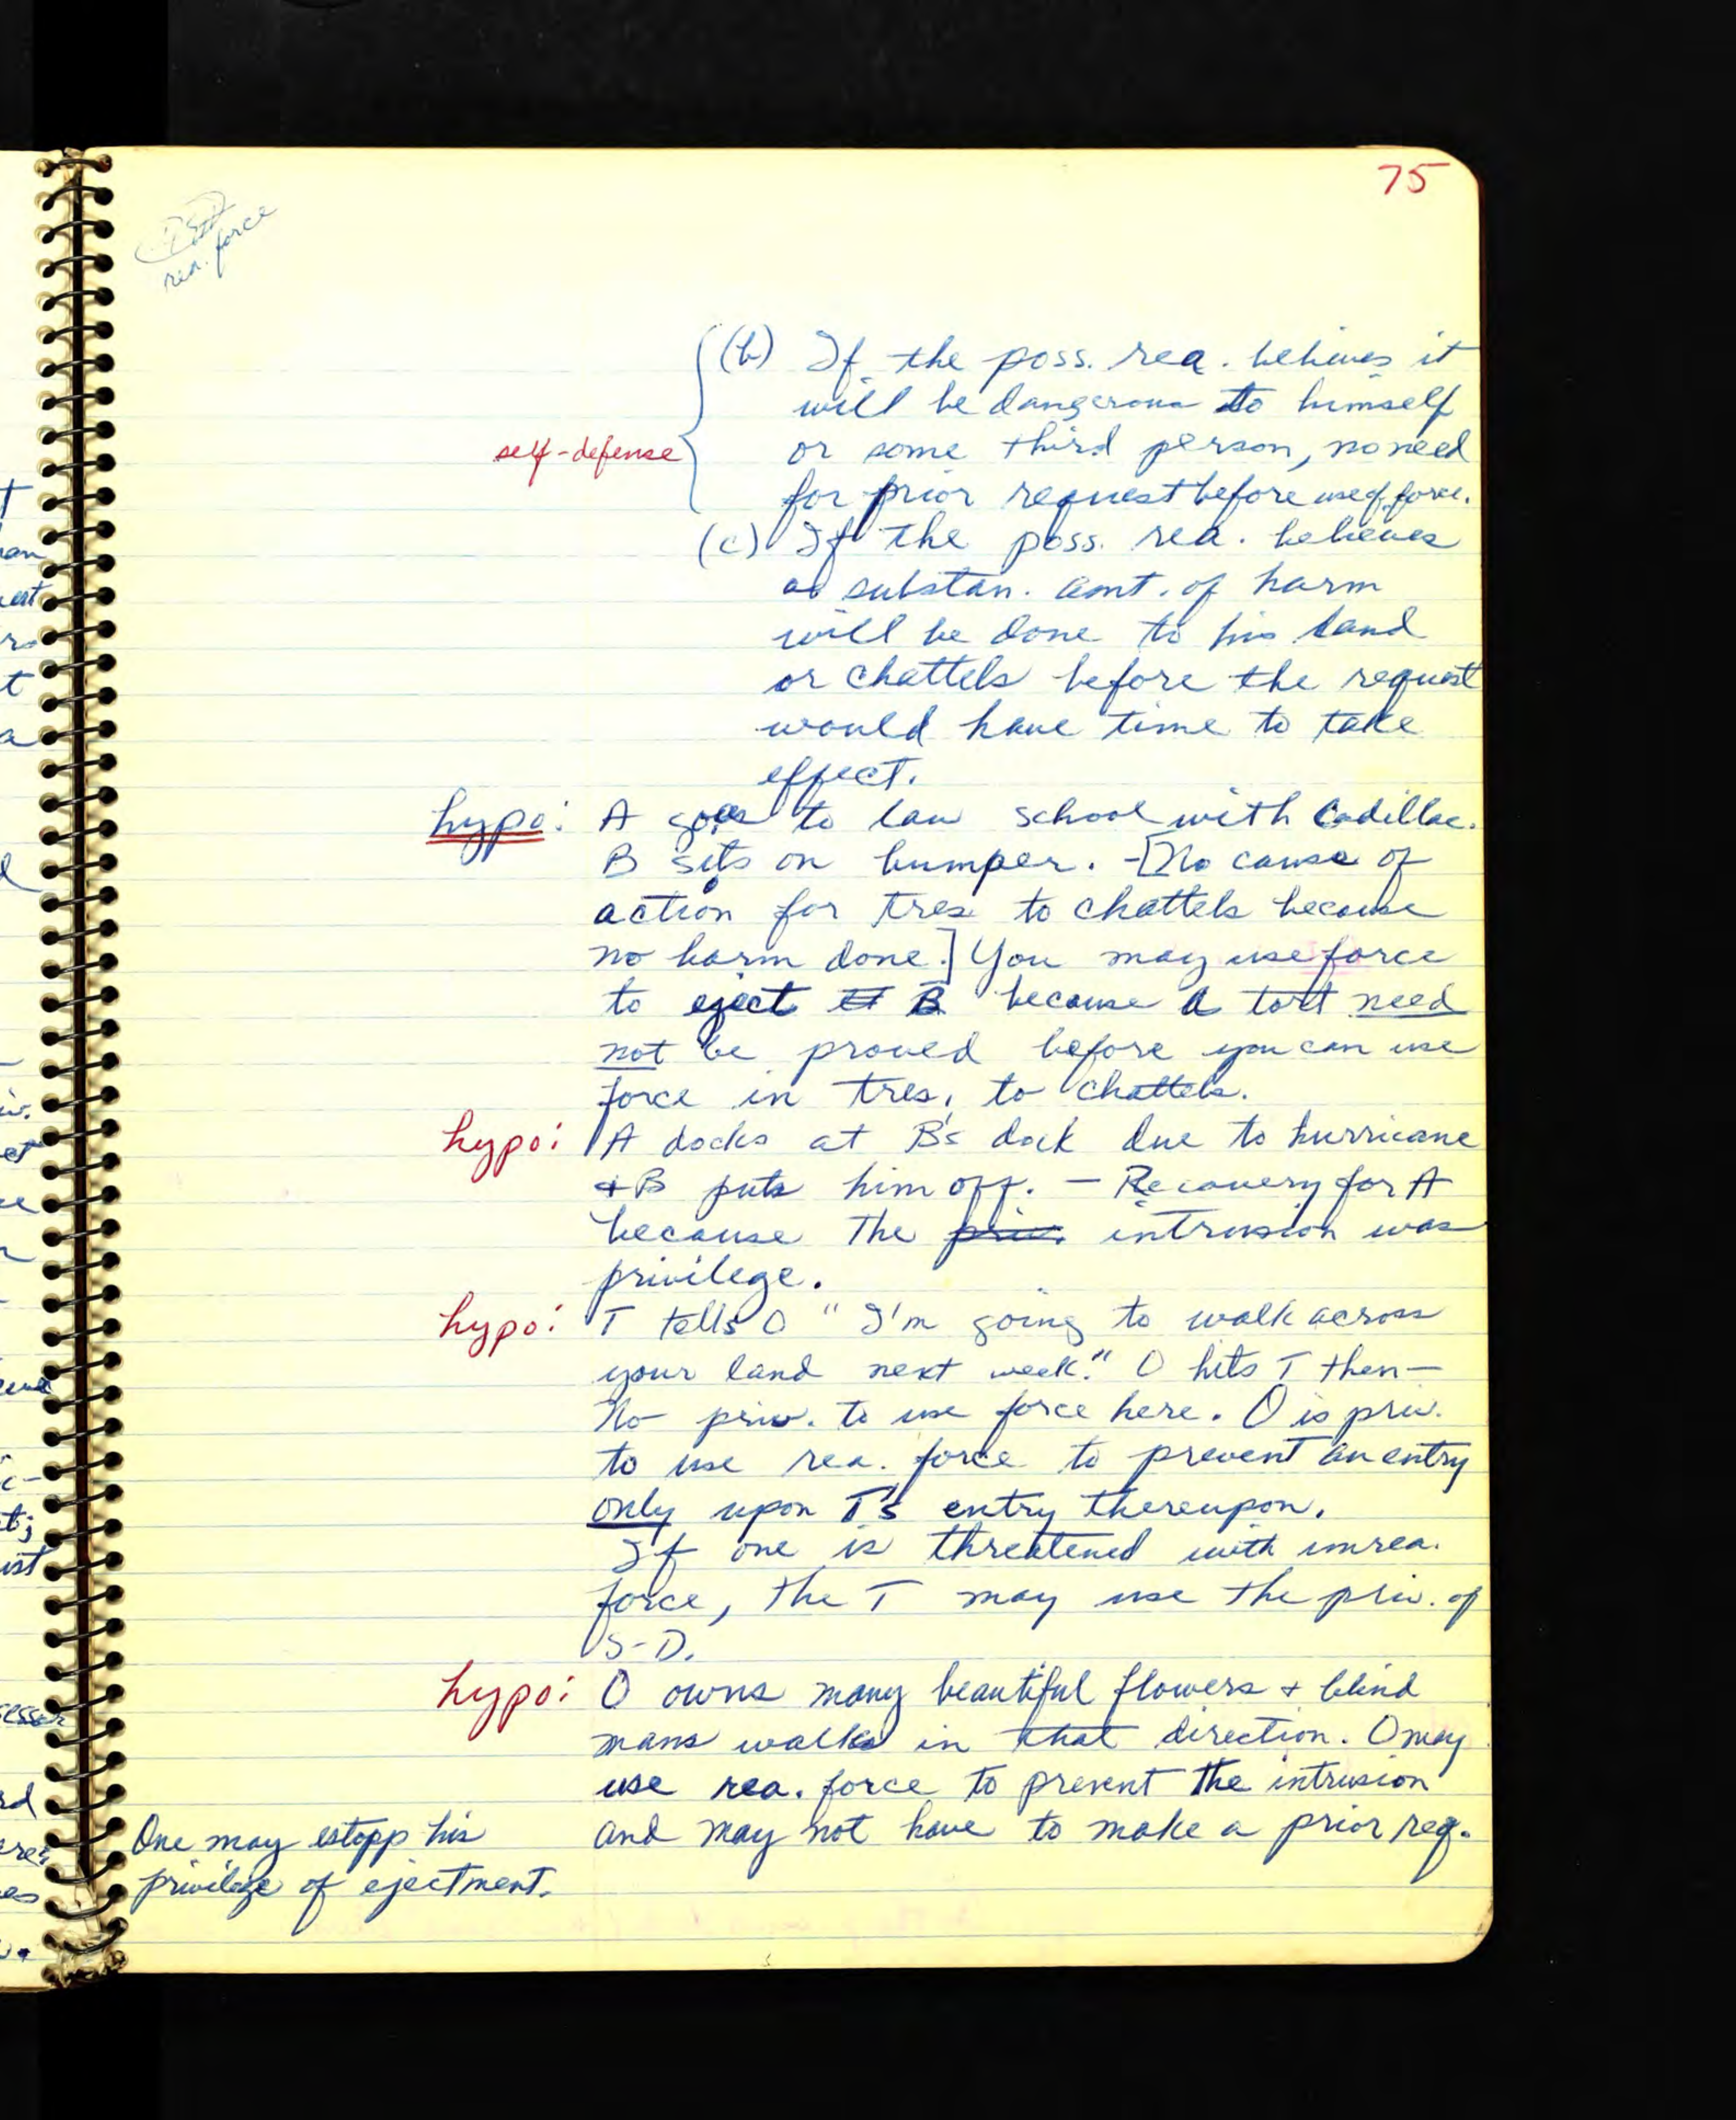 75
rea. force
(b) If the poss. rea. believes it
will be dangerous to himself
self-defense
or some third person, no need
for prior request before use of force.
(c) If the poss. rea. believes
a substan. amt. of harm
will be done to his land
or chattels before the request
would have time to take
effect.
hypo: A goes to law school with Cadillac.
B sits on bumper. -[No cause of
action for tres. to chattels because
no harm done.] You may use force
to eject B because a tort need
not be proved before you can use
force in tres. to chattels.
hypo: A docks at B's dock due to hurricane
+ B puts him off. - Recovery for A
because the priv. intrusion was
privilege.
hypo: T tells O "I'm going to walk across
your land next week." O hits T then-
No priv. to use force here. O is priv.
to use rea. force to prevent an entry
only upon T's entry thereupon.
If one is threatened with unrea.
force, the T may use the priv. of
S-D.
hypo: O owns many beautiful flowers + blind
mans walks in that direction. O may
use rea. force to prevent the intrusion
and may not have to make a prior req.
One may estopp his
privilege of ejectment.